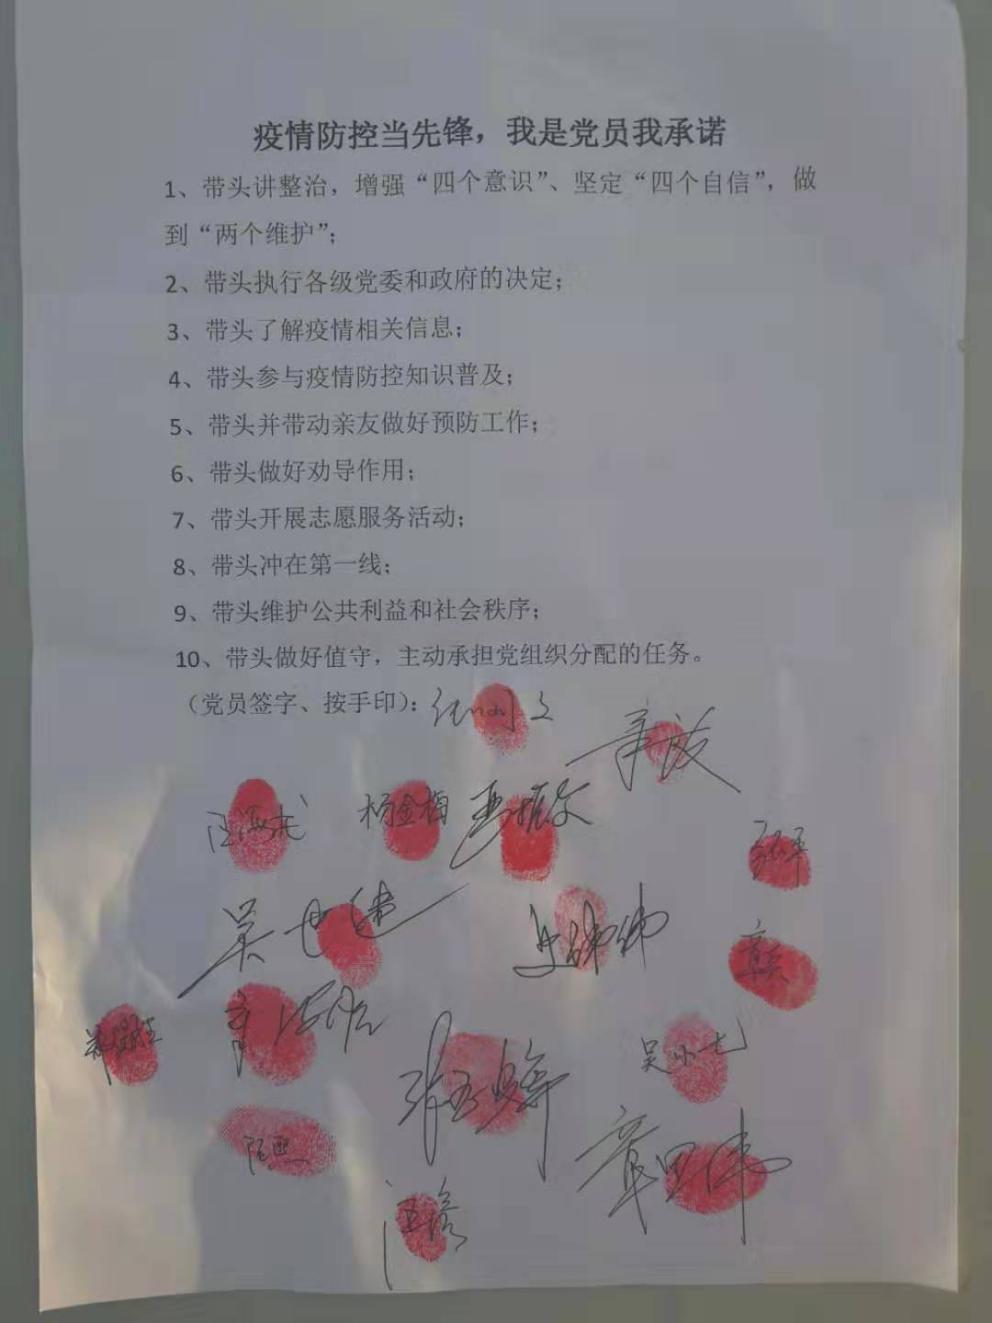 疫情防控当先锋，我是党员我承诺
1、带头讲整治，增强“四个意识”、坚定“四个自信”，做
到“两个维护”；
2、带头执行各级党委和政府的决定；
3、带头了解疫情相关信息；
4、带头参与疫情防控知识普及；
5、带头并带动亲友做好预防工作；
6、带头做好劝导作用；
7、带头开展志愿服务活动；
8、带头冲在第一线；
9、带头维护公共利益和社会秩序；
10、带头做好值守，主动承担党组织分配的任务。
（党员签字、按手印）：
杨金梅